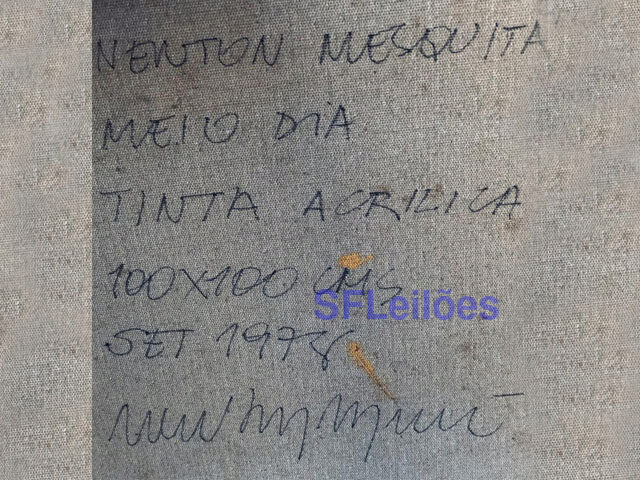 NEWTON MESQUITA
MEIO DIA
TINTA ACRILICA
100X100 CMS
SFLeilões
SET 1978